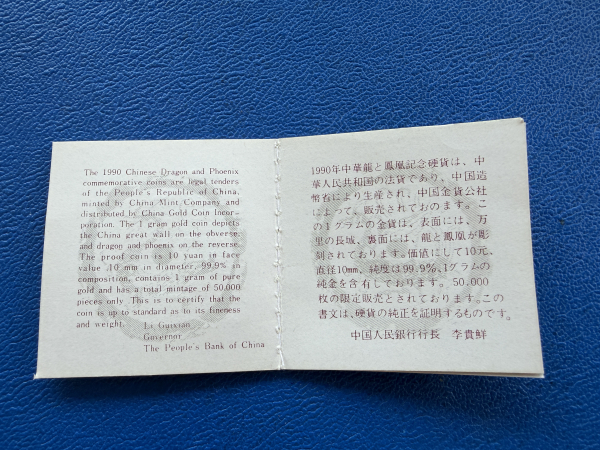 The 1990 Chinese Dragon and Phoenix
commemorative coins are legal tenders
of the People's Republic of China,
minted by China Mint Company and
distributed by China Gold Coin Incor-
poration. The 1 gram gold coin depicts
the China great wall on the obverse
and dragon and phoenix on the reverse.
The proof coin is 10 yuan in face
value ,10 mm in diameter, 99.9% in
composition, contains 1 gram of pure
gold and has a total mintage of 50,000
pieces only. This is to certify that the
coin is up to standard as to its fineness
and weight.
Li Guixian
Governor
The People's Bank of China
1990年中華龍と鳳凰記念硬貨は、中
華人民共和国の法貨であり、中国造
幣省により生産され、中国金貨公社
によって、販売されておのます。こ
の1グラムの金貨は、表面には、万
里の長城、裏面には、龍と鳳凰が彫
刻されております。価値にして10元、
直径10mm、純度は99.9%、1グラムの
純金を含有しております。50.000
枚の限定販売とされております。この
書文は、硬貨の純正を証明するものです。
中国人民銀行行長 李貴鮮